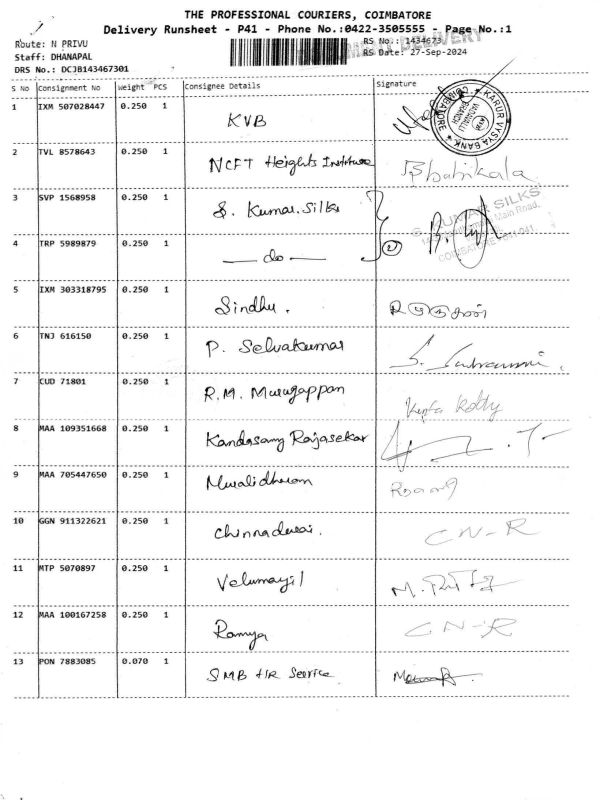 THE PROFESSIONAL COURIERS, COIMBATORE
Delivery Runsheet - P41 - Phone No.:0422-3505555 - Page No.:1
Route: N PRIVU
RS No.: 1434673
Staff: DHANAPAL
RS Date: 27-Sep-2024
DRS No.: DCJB143467301
S No Consignment No Weight PCS Consignee Details Signature
1 IXM 507028447 0.250 1 KVB
KARUR VYSYA BANK COIMBATORE
2 TVL 8578643 0.250 1 NCFT Heights Institute
3 SVP 1568958 0.250 1 S. Kumar. Silks
S. KUMAR SILKS
Main Road,
4 TRP 5989879 0.250 1 — do — 2
5 IXM 303318795 0.250 1 Sindhu.
6 TNJ 616150 0.250 1 P. Selvakumar
7 CUD 71801 0.250 1 R.M. Murugappan
8 MAA 109351668 0.250 1 Kandasamy Rajasekar
9 MAA 705447650 0.250 1 Muralidharan
10 GGN 911322621 0.250 1 Chinnadurai. CN-R
11 MTP 5070897 0.250 1 Velumayil
12 MAA 100167258 0.250 1 Ramya CN-R
13 PON 7883085 0.070 1 SMB HR Service